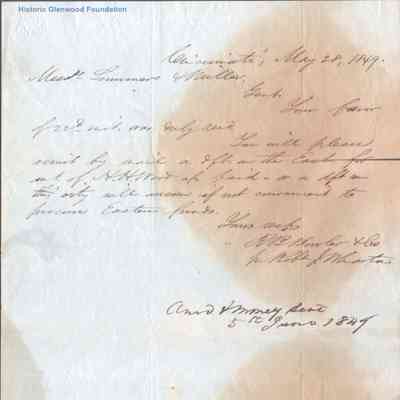 Historic Glenwood Foundation
Cincinnati, May 28, 1849.
Messrs. Summers & Miller
Gent.
Your favor
of 22d ult. was duly recd
You will please
remit by mail a dft. on the East for
amt. of
paid or a dft on
this city will answer if not convenient to
procure Eastern funds.
Yours resp
& Co
Ansd & money sent
5th June 1849